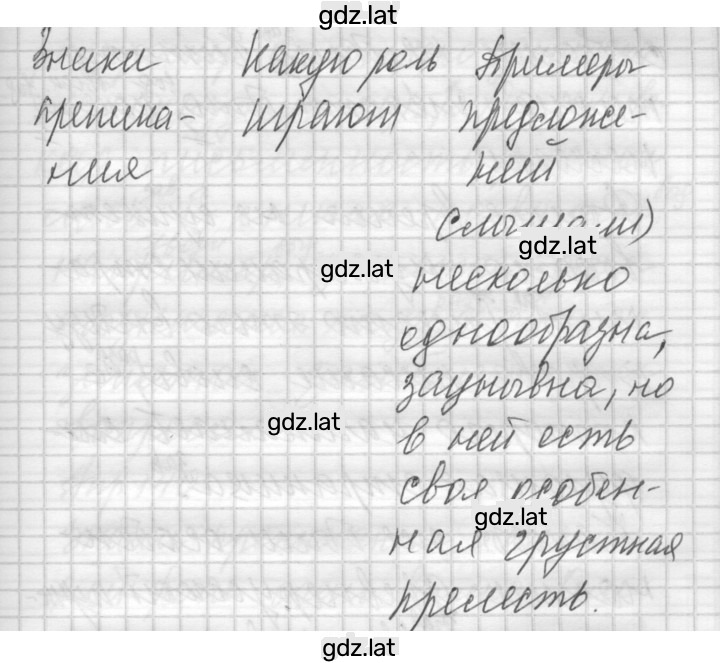 gdz.lat
Знаки Какую роль Примеры
препина- играют предложе-
ния ний
gdz.lat
gdz.lat несколько
однообразна,
заунывна, но
gdz.lat
в ней есть
своя особен-
gdz.lat
ная грустная
прелесть.
gdz.lat